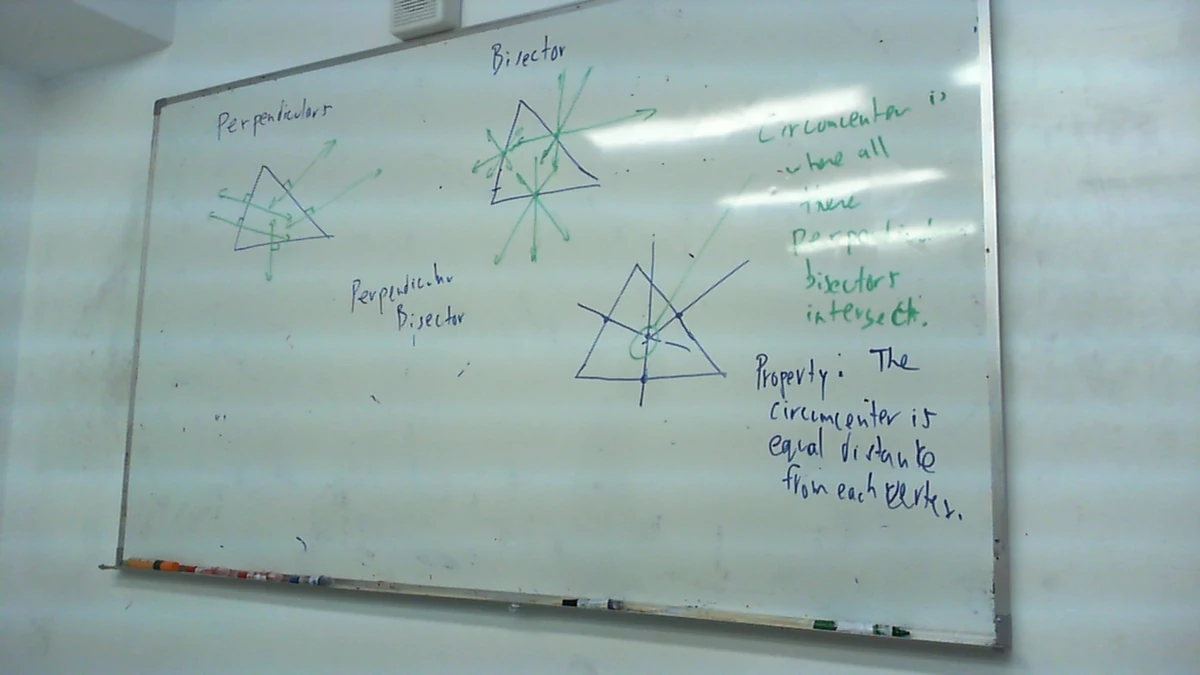 Bisector
Perpendiculars
Circumcenter is
where all
three
perpendicular
bisectors
intersect.
Perpendicular
Bisector
Property: The
circumcenter is
equal distance
from each vertex.